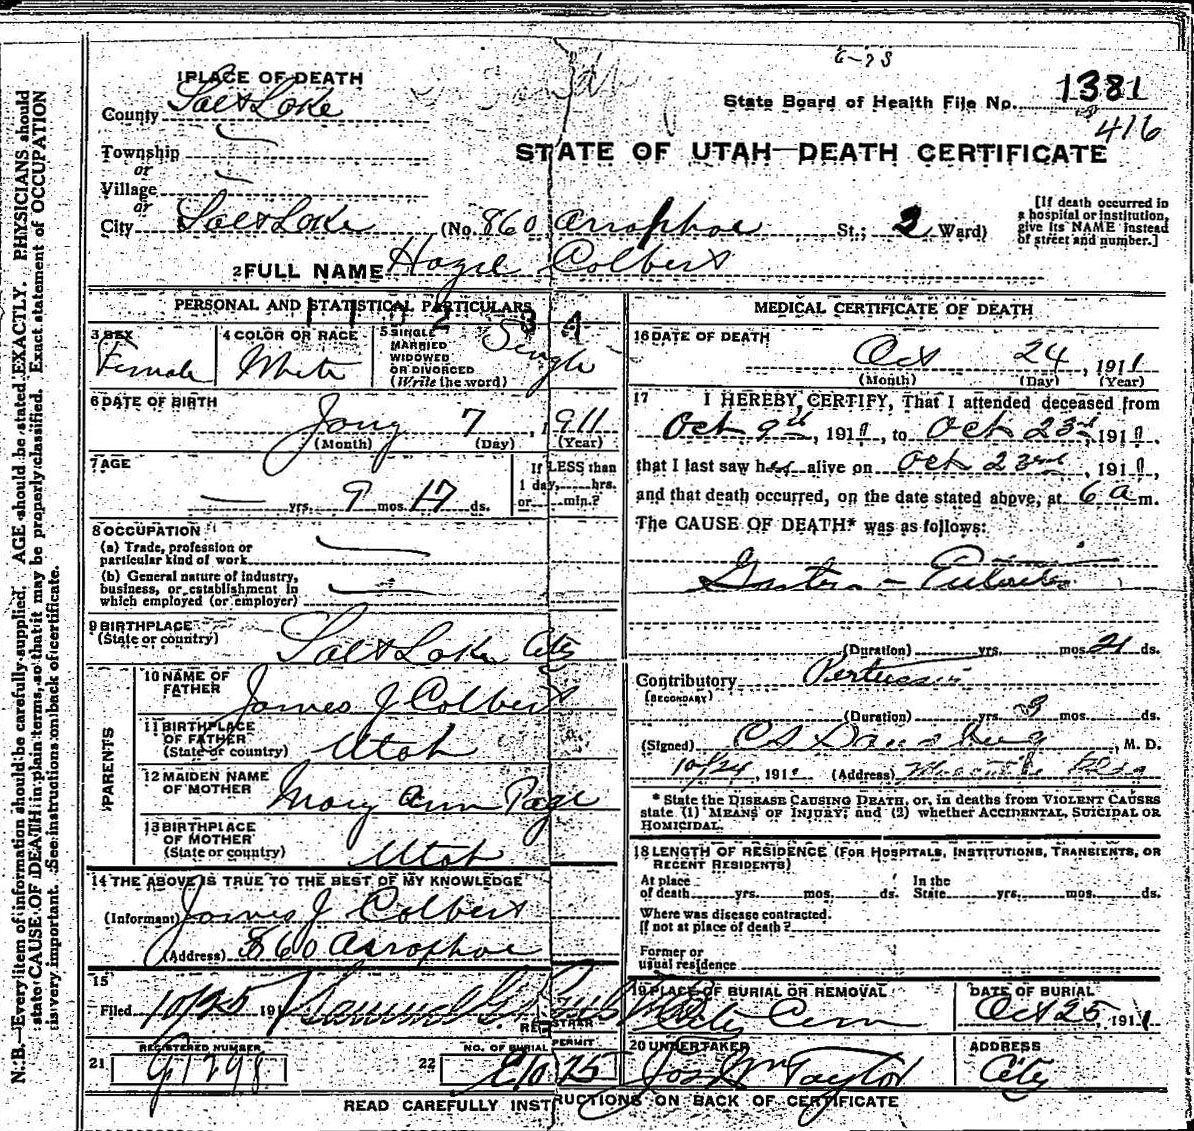 6-28
1 PLACE OF DEATH
State Board of Health File No. 1381
416
County Salt Lake
STATE OF UTAH—DEATH CERTIFICATE
Township
or
Village
or
City Salt Lake (No. 860 Arrophoe St.; 2 Ward)
[If death occurred in
a hospital or institution,
give its NAME instead
of street and number.]
2 FULL NAME Hazel Colbert
PERSONAL AND STATISTICAL PARTICULARS
3 SEX
Female
4 COLOR OR RACE
White
5 SINGLE
MARRIED
WIDOWED
OR DIVORCED
(Write the word)
Single
6 DATE OF BIRTH
Jany 7, 1911
(Month) (Day) (Year)
7 AGE
yrs. 9 mos. 17 ds.
If LESS than
1 day, hrs.
or min.?
8 OCCUPATION
(a) Trade, profession or
particular kind of work
(b) General nature of industry,
business, or establishment in
which employed (or employer)
9 BIRTHPLACE
(State or country)
Salt Lake City
PARENTS
10 NAME OF
FATHER
James J Colbert
11 BIRTHPLACE
OF FATHER
(State or country)
Utah
12 MAIDEN NAME
OF MOTHER
Mary Ann Page
13 BIRTHPLACE
OF MOTHER
(State or country)
Utah
14 THE ABOVE IS TRUE TO THE BEST OF MY KNOWLEDGE
(Informant) James J Colbert
(Address) 860 Arrophoe
15
Filed 10/25 191 Samuel G.
REGISTRAR
REGISTERED NUMBER
21 G1298
NO. OF BURIAL PERMIT
22 E1075
MEDICAL CERTIFICATE OF DEATH
16 DATE OF DEATH
Oct 24, 1911
(Month) (Day) (Year)
17 I HEREBY CERTIFY, That I attended deceased from
Oct 9th, 1911, to Oct 23rd 1911,
that I last saw her alive on Oct 23rd, 1911,
and that death occurred, on the date stated above, at 6 a m.
The CAUSE OF DEATH* was as follows:
Gastro-Enteritis
(Duration) yrs. mos. 21 ds.
Contributory Pertussis
(SECONDARY)
(Duration) yrs. 3 mos. ds.
(Signed) M. D.
10/24, 191 (Address) Bldg
* State the DISEASE CAUSING DEATH, or, in deaths from VIOLENT CAUSES
state (1) MEANS OF INJURY; and (2) whether ACCIDENTAL, SUICIDAL OR
HOMICIDAL.
18 LENGTH OF RESIDENCE (FOR HOSPITALS, INSTITUTIONS, TRANSIENTS, OR
RECENT RESIDENTS)
At place
of death yrs. mos. ds.
In the
State yrs. mos. ds.
Where was disease contracted.
If not at place of death?
Former or
usual residence
19 PLACE OF BURIAL OR REMOVAL
City Cem
DATE OF BURIAL
Oct 25, 1911
20 UNDERTAKER
Jos Wm Taylor
ADDRESS
City
READ CAREFULLY INSTRUCTIONS ON BACK OF CERTIFICATE
N. B.—Every item of information should be carefully supplied. AGE should be stated EXACTLY. PHYSICIANS should
state CAUSE OF DEATH in plain terms, so that it may be properly classified. Exact statement of OCCUPATION
is very important. See instructions on back of certificate.